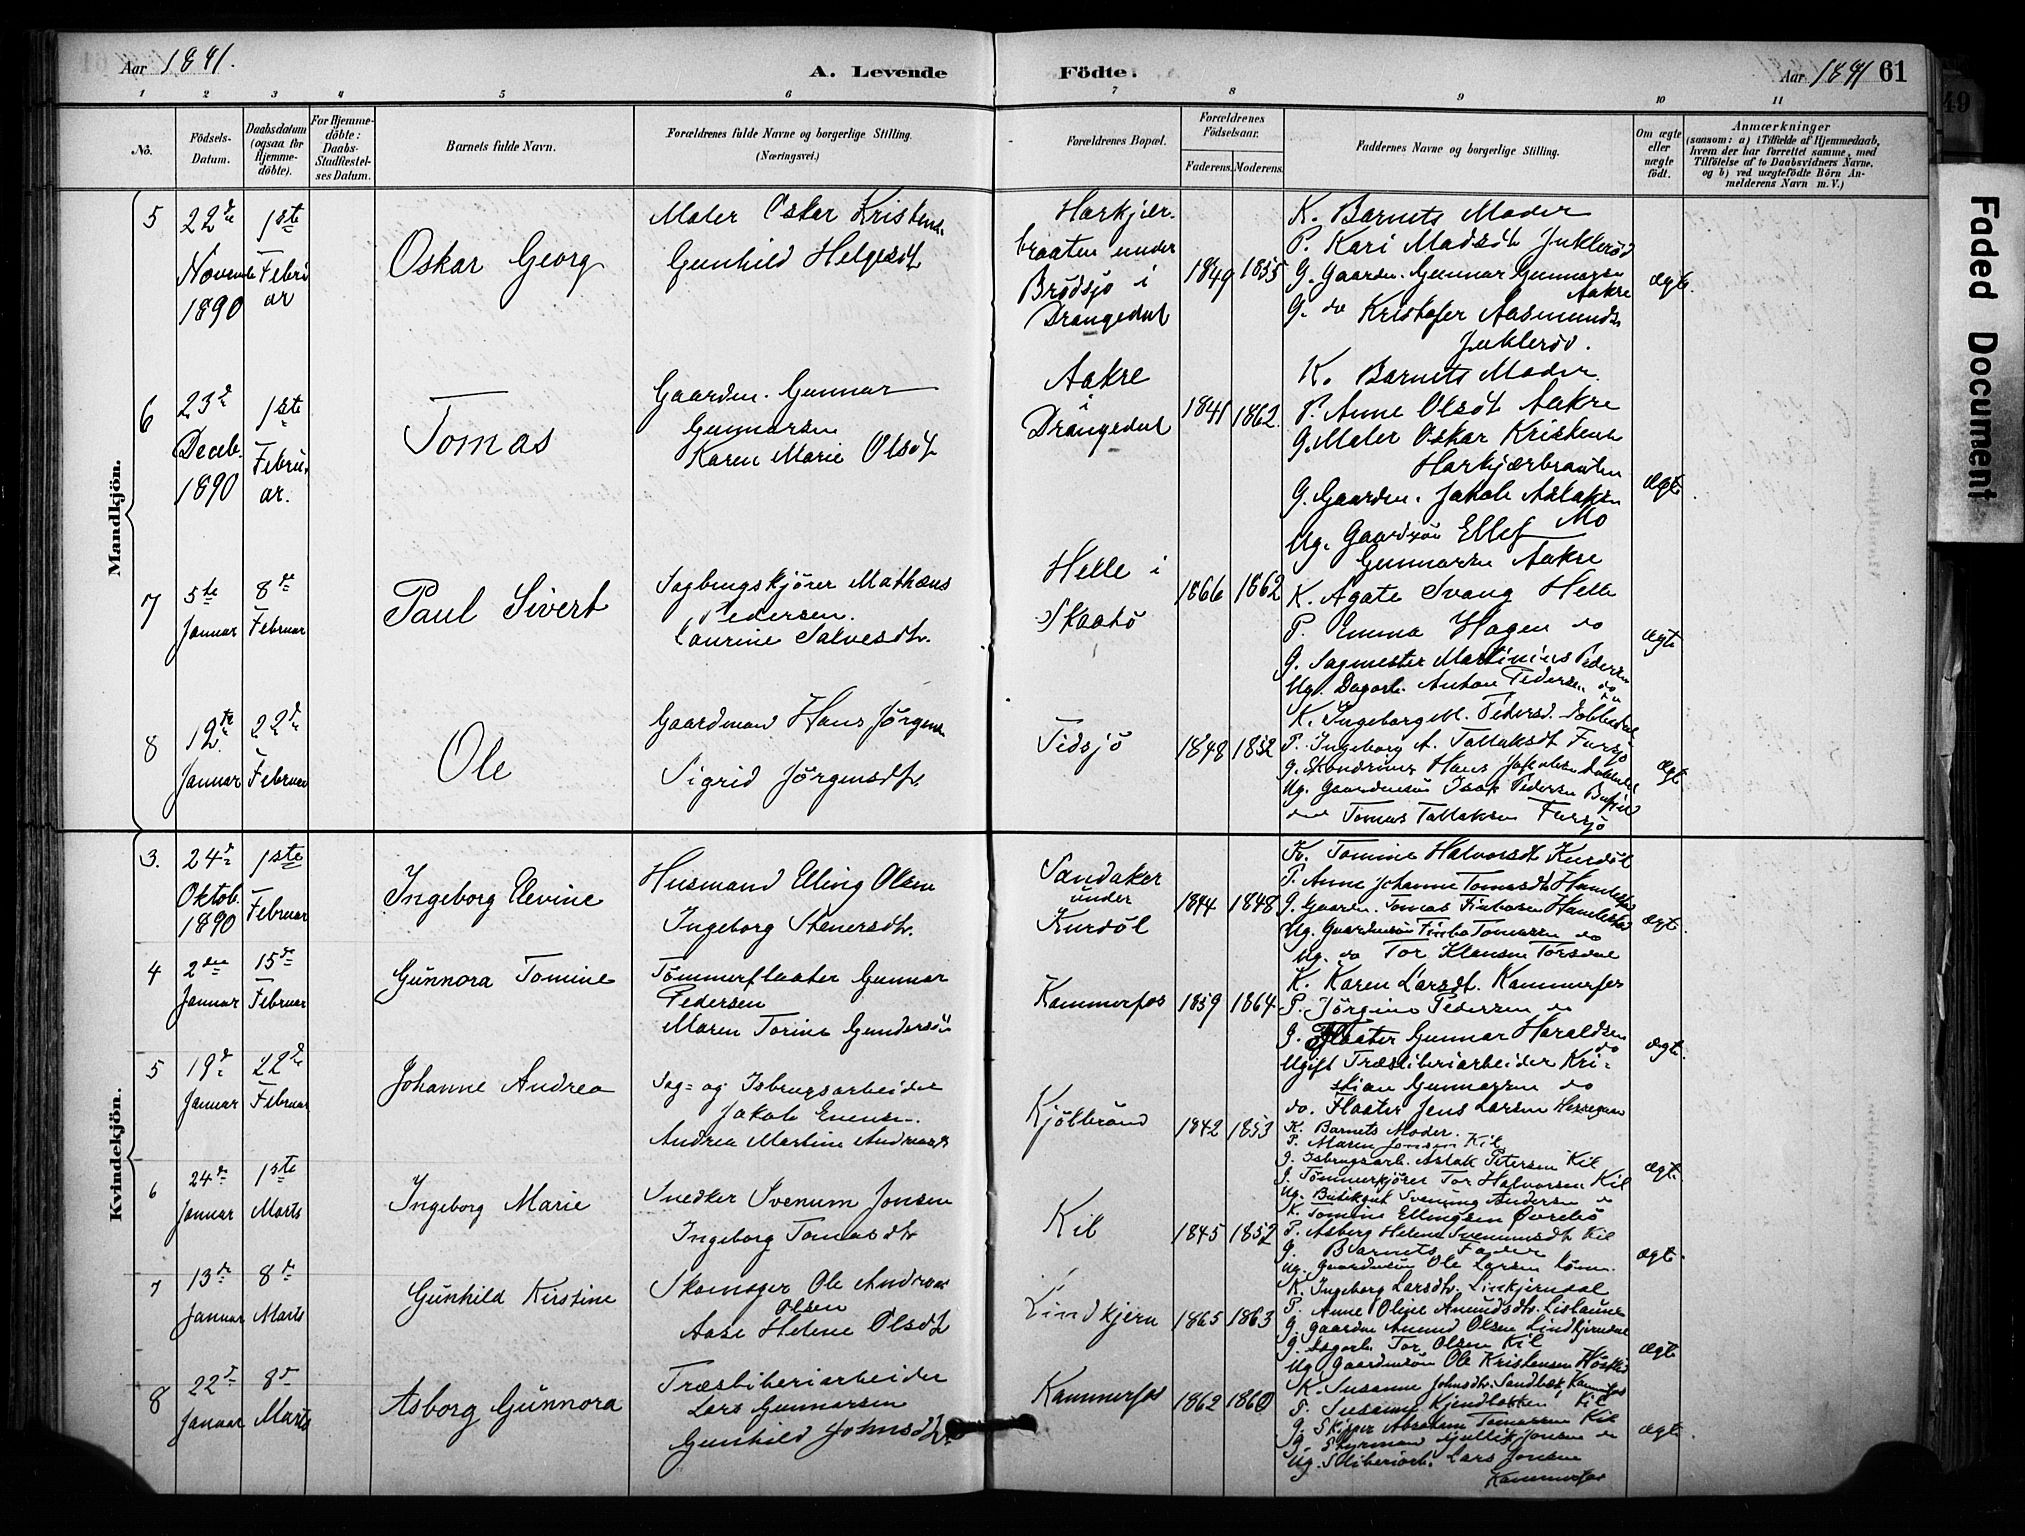 Aar 1891.
A. Levende
Födte.
Aar 1891
61
49
1 2 3 4 5 6 7 8 9 10 11
No.
Födsels-Datum.
Daabsdatum (ogsaa for Hjemme-döbte).
For Hjemme-döbte: Daabs-Stadfæstel-ses Datum.
Barnets fulde Navn.
Forældrenes fulde Navne og borgerlige Stilling. (Næringsvei.)
Forældrenes Bopæl.
Forældrenes Födselsaar.
Faderens.
Moderens.
Faddernes Navne og borgerlige Stilling.
Om ægte eller uægte födt.
Anmærkninger
(saasom: a) i Tilfælde af Hjemmedaab,
hvem der har forrettet samme, med
Tilföielse af to Daabsvidners Navne,
og b) ved uægtefödte Börn An-
melderens Navn m. V.)
Mandkjön.
5
22de
Novembr
1890
1ste
Febru
ar
Oskar Georg
Maler Oskar Kristens.
Gunhild Helgesdt
Harkjær-
braaten under
Brødsjø i
Drangedal
1849
1855
K. Barnets Moder
P. Kari Madsdt Juklerød
G. Gaardm. Gunnar Gunnarsen
Aakre
G. do Kristofer Aasmunds.
Juklerød.
ægte.
6
23de
Deceb.
1890
1ste
Febru-
ar.
Tomas
Gaardm. Gunnar
Gunnarsen
Karen Marie Olsdt
Aakre
i
Drangedal
1841
1862.
K. Barnets Moder.
P. Anne Olsdt Aakre
G. Maler Oskar Kristens
Harkjærbraaten
G. Gaardm. Jakob Aslaksen
Mo
Ug. Gaardsøn Ellef
Gunnarsen Aakre
ægte.
7
5te
Januar
8de
Februar
Paul Sivert
Sagbrugskjører Mathæus
Pedersen.
Laurine Salvesdtr.
Helle i
Skaatø
1866
1862
K. Agate Svang Helle
P. Emma Hagen do
G. Sagmester Martinius Pedersen
Ug. Dagarb. Anton Pedersen do
ægte
8
12te
Januar
22de
Februar
Ole
Gaardmand Hans Jørgens.
Sigrid Jørgensdtr.
Tidsjø
1848
1852
K. Ingeborg M. Pedersd.
P. Ingeborg A. Tallaksdt Fursjø
G. Hans
Ug. Gaardmsøn Isak Pedersen
Tomas Tallaksen Fursjø
ægt
Kvindekjön.
3.
24de
Oktob.
1890
1ste
Februar
Ingeborg Elevine
Husmand Elling Olsen
Ingeborg Stenersdtr.
Sandaker
under
Kurdøl
1844
1848
K. Tomine Halvorsdt Kurdøl
P. Anne Johanne Tomasdtr
G. Gaardm. Tomas
Ug. Gaardmsøn Tomassen do
Ug. do Tor Klausen Torsdal
ægte.
4
2den
Januar
15de
Februar
Gunnora Tomine
Tømmerflaater Gunnar
Pedersen
Maren Torine Gundersdt
Kammerfos
1859
1864
K. Karen Larsdt. Kammerfos
P. Jørgine Pedersen do
G. Flaater Gunnar Haraldsen
do
Ugift Træsliberiarbeider Kri-
stian Gunnarsen do
do. Flaater Jens Larsen
ægte.
5
19de
Januar
22de
Februar
Johanne Andrea
Sag- og Isbrugsarbeider
Jakob Evensen.
Andrea Martine Andreasdt
Kjølbrønd
1842
1853
K. Barnets Moder.
P. Maren Jonsen Kil
G. Isbrugsarb. Aslak Petersen Kil
G. Tømmerkjører Tor Halvorsen Kil
Ug. Svenung Andersen do
ægte.
6
24de
Januar
1ste
Marts
Ingeborg Marie
Snedker Svenum Jonsen
Ingeborg Tomasdtr
Kil
1845
1852
K. Tomine Ellingsen
P. Asberg Helene Svenumsdt Kil
G. Barnets Fader
Ug. Gaardmsøn Ole Larsen
ægte.
7
13de
Januar
8de
Marts
Gunhild Kirstine
Skomager Ole Andreas
Olsen
Aase Helene Olsdt
Lindkjern
1865
1863
K. Ingeborg Larsdtr. Linkjerndal
P. Anne Oline Amundsdtr.
G. Gaardm Amund Olsen Lindkjerndal
G. Tor Olsen Kil
Ug. Gaardmsøn Ole Kristensen
ægte
8
22de
Januar
8de
Marts
Asborg Gunnora
Træsliberiarbeider
Lars Gunnarsen
Gunhild Johnsdt.
Kammerfos
1862
1860
K. Susanne Johnsdtr. Sandbæk, Kammerfos
P. Susanne Kjendbakken Kil
G. Skipper Abraham Tomassen Kil
G. Styrmand Gjullik Jonsen do
Ug. Sliberiarb. Lars Jonsen
Kammerfos
ægte.
Faded Document